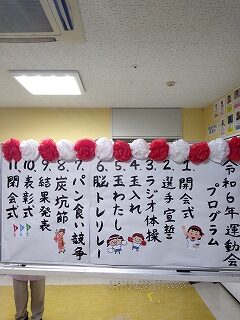 令和6年運動会
プログラム
1.開会式
2.選手宣誓
3.ラジオ体操
4.玉入れ
5.玉わたし
6.脳トレリレー
7.パン食い競争
8.炭坑節
9.結果発表
10.表彰式
11.閉会式